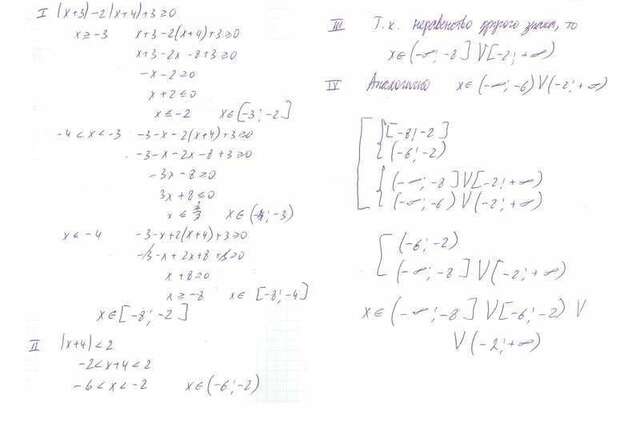 I |x+3|-2|x+4|+3≥0
x≥-3 x+3-2(x+4)+3≥0
x+3-2x-8+3≥0
-x-2≥0
x+2≤0
x≤-2 x∈[-3;-2]
-4<x<-3 -3-x-2(x+4)+3≥0
-3-x-2x-8+3≥0
-3x-8≥0
3x+8≤0
x∈(-4;-3)
x≤-4 -3-x+2(x+4)+3≥0
-3-x+2x+8+3≥0
x+8≥0
x≥-8 x∈[-8;-4]
x∈[-8;-2]
II |x+4|<2
-2<x+4<2
-6<x<-2 x∈(-6;-2)
III Т.к. неравенство другого знака, то
x∈(-∞;-8]V[-2;+∞)
IV Аналогично x∈(-∞;-6)V(-2;+∞)
[-8;-2]
(-6;-2)
(-∞;-8]V[-2;+∞)
(-∞;-6)V(-2;+∞)
(-6;-2)
(-∞;-8]V(-2;+∞)
x∈(-∞;-8]V[-6;-2)V
V(-2;+∞)